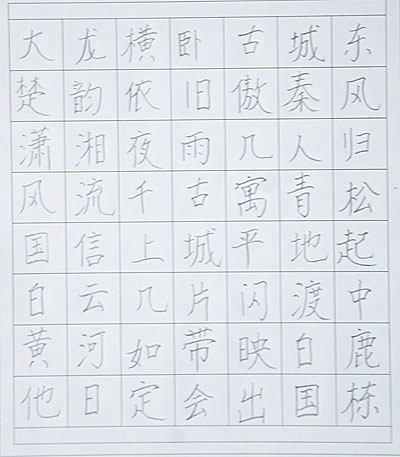 大龙横卧古城东
楚韵依旧傲秦风
潇湘夜雨几人归
风流千古寓青松
国信上城平地起
白云几片闪渡中
黄河如带映白鹿
他日定会出国栋